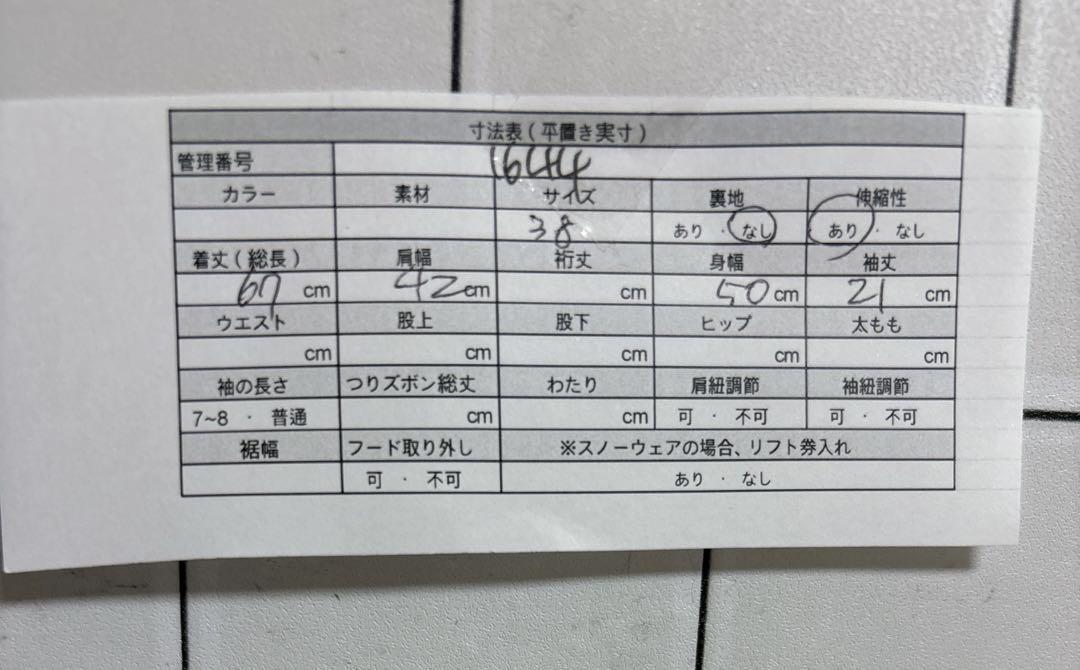 寸法表(平置き実寸)
管理番号 1644
カラー 素材 サイズ 裏地 伸縮性
38 あり・なし あり・なし
着丈(総長) 肩幅 裄丈 身幅 袖丈
67 cm 42 cm cm 50 cm 21 cm
ウエスト 股上 股下 ヒップ 太もも
cm cm cm cm cm
袖の長さ つりズボン総丈 わたり 肩紐調節 袖紐調節
7~8・普通 cm cm 可・不可 可・不可
裾幅 フード取り外し ※スノーウェアの場合、リフト券入れ
可・不可 あり・なし